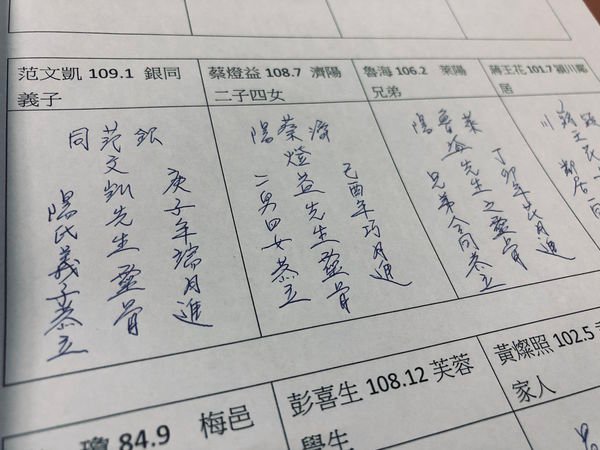 范文凱 109.1 銀同
義子
銀
同
范文凱先生靈骨
庚子年端月進
陽氏義子恭立
蔡燈益 108.7 濟陽
二子四女
濟
陽
蔡燈益先生靈骨
己酉年巧月進
二男四女恭立
魯海 106.2 萊陽
兄弟
萊
陽
魯海先生之靈骨
丁卯年花月進
兄弟仝同恭立
蔣王花 101.7 潁川鄰
居
川
84.9 梅邑
彭喜生 108.12 芙蓉
學生
黃燦照 102.5
家人